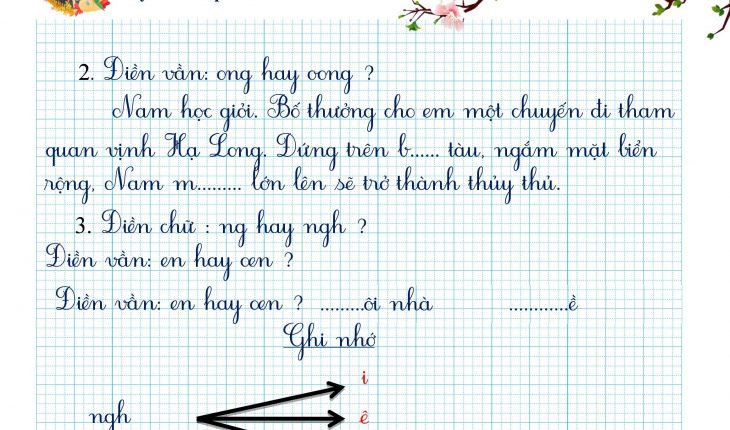 2. Điền vần: ong hay oong ?
Nam học giỏi. Bố thưởng cho em một chuyến đi tham
quan vịnh Hạ Long. Đứng trên b...... tàu, ngắm mặt biển
rộng, Nam m......... lớn lên sẽ trở thành thủy thủ.
3. Điền chữ : ng hay ngh ?
Điền vần: en hay oen ?
Điền vần: en hay oen ? .........ôi nhà ............ề
Ghi nhớ
i
ngh ê